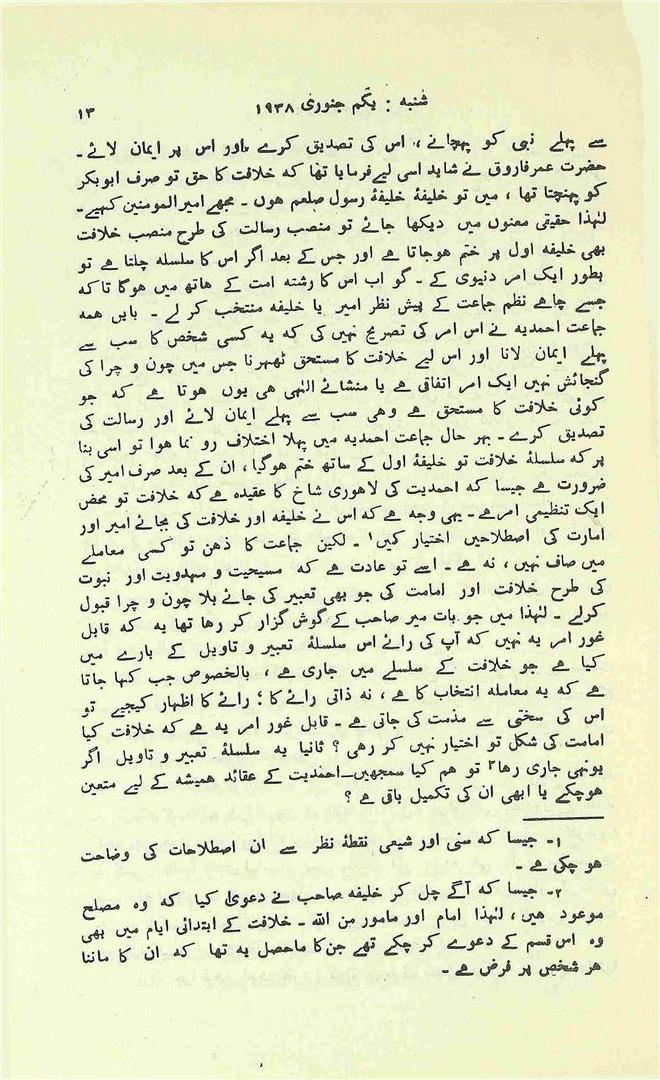 شنبہ : یکم جنوری ۱۹۳۸
۱۳
سے پہلے نبی کو پہچانے ، اس کی تصدیق کرے ، اور اس پر ایمان لائے ۔
حضرت عمر فاروق نے شاید اسی لیے فرمایا تھا کہ خلافت کا حق تو صرف ابوبکر
کو پہنچتا تھا ، میں تو خلیفۂ خلیفۂ رسول صلعم ہوں ۔ مجھے امیر المومنین کہیے ۔
لہٰذا حقیقی معنوں میں دیکھا جائے تو منصب رسالت کی طرح منصب خلافت
بھی خلیفہ اول پر ختم ہوجاتا ہے اور جس کے بعد اگر اس کا سلسلہ چلتا ہے تو
بطور ایک امر دنیوی کے ۔ گو اب اس کا رشتہ امت کے ہاتھ میں ہوگا تاکہ
جسے چاہے نظم جماعت کے پیش نظر امیر یا خلیفہ منتخب کر لے ۔ بایں ہمہ
جماعت احمدیہ نے اس امر کی تصریح نہیں کی کہ یہ کسی شخص کا سب سے
پہلے ایمان لانا اور اس لیے خلافت کا مستحق ٹھہرنا جس میں چون و چرا کی
گنجائش نہیں ایک امر اتفاقی ہے یا منشائے الٰہی ہی یوں ہوتا ہے کہ جو
کوئی خلافت کا مستحق ہے وہی سب سے پہلے ایمان لائے اور رسالت کی
تصدیق کرے ۔ بہر حال جماعت احمدیہ میں پہلا اختلاف رو نما ہوا تو اسی بنا
پر کہ سلسلۂ خلافت تو خلیفۂ اول کے ساتھ ختم ہوگیا ، ان کے بعد صرف امیر کی
ضرورت ہے جیسا کہ احمدیت کی لاہوری شاخ کا عقیدہ ہے کہ خلافت تو محض
ایک تنظیمی امر ہے ۔ یہی وجہ ہے کہ اس نے خلیفہ اور خلافت کی بجائے امیر اور
امارت کی اصطلاحیں اختیار کیں۱ ۔ لکین جماعت کا ذہن تو کسی معاملے
میں صاف نہیں ، نہ ہے ۔ اسے تو عادت ہے کہ مسیحیت و مہدویت اور نبوت
کی طرح خلافت اور امامت کی جو بھی تعبیر کی جائے بلا چون و چرا قبول
کرلے ۔ لہٰذا میں جو بات میر صاحب کے گوش گزار کر رہا تھا یہ کہ قابل
غور امر یہ نہیں کہ آپ کی رائے اس سلسلۂ تعبیر و تاویل کے بارے میں
کیا ہے جو خلافت کے سلسلے میں جاری ہے ، بالخصوص جب کہا جاتا
ہے کہ یہ معاملہ انتخاب کا ہے ، نہ ذاتی رائے کا ؛ رائے کا اظہار کیجیے تو
اس کی سختی سے مذمت کی جاتی ہے ۔ قابل غور امر یہ ہے کہ خلافت کیا
امامت کی شکل تو اختیار نہیں کر رہی ؟ ثانیا یہ سلسلۂ تعبیر و تاویل اگر
یونہی جاری رہا۲ تو ہم کیا سمجھیں۔احمدیت کے عقائد ہمیشہ کے لیے متعین
ہوچکے یا ابھی ان کی تکمیل باقی ہے ؟
۱۔ جیسا کہ سنی اور شیعی نقطۂ نظر سے ان اصطلاحات کی وضاحت
ہو چکی ہے ۔
۲۔ جیسا کہ آگے چل کر خلیفہ صاحب نے دعویٰ کیا کہ وہ مصلح
موعود ہیں ، لہٰذا امام اور مامور من اللہ ۔ خلافت کے ابتدائی ایام میں بھی
وہ اس قسم کے دعوے کر چکے تھے جن کا ماحصل یہ تھا کہ ان کا ماننا
ہر شخص پر فرض ہے ۔